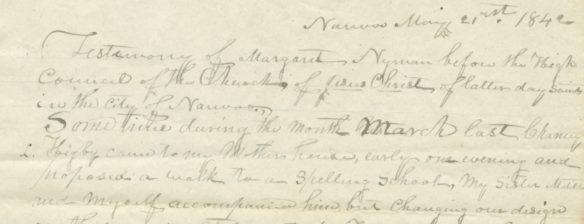 Nauvoo May 21st. 1842
Testimony of Margaret Nyman before the High
Council of the Church of Jesus Christ of latter day saints
in the city of Nauvoo,
Sometime during the month March last Chancy
Higby came to my Mothers house, early one evening and
proposed a walk to a spelling school, My sister
and Myself accompanied him but Changing our design